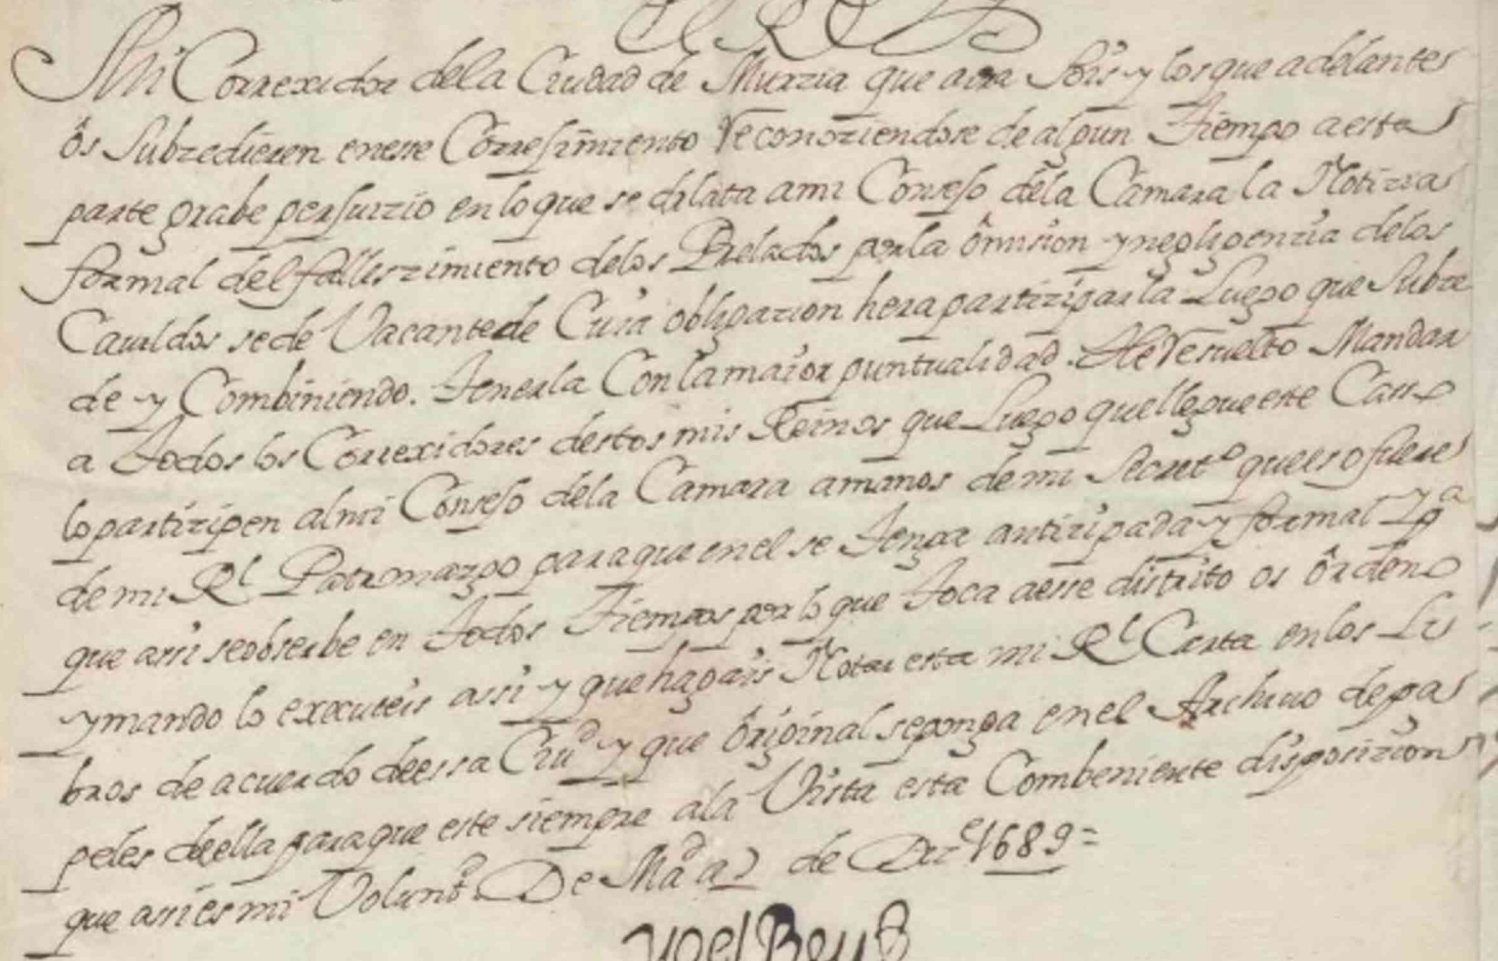 El Rey
Mi Correxidor dela Ciudad de Murzia que aora sois y los que adelante
os Subzedieren enese Correximiento Reconoziendose de algun Tiempo aesta
parte grabe perjuizio en lo que se dilata ami Consejo dela Camara la Notizia
formal del falleszimiento delos Prelados por la omision y neglijenzia delos
Cauildos sede Vacante de Cuia obligazion hera partiziparla Luego que Subze
de y Combiniendo. Tenerla Con la maior puntualidad. He Resuelto Mandar
a Todos los Correxidores destos mis Reinos que Luego que llegue este Casso
lo partizipen almi Consejo dela Camara amanos de mi Secretº que es o fuere
de mi Rl Patronazgo para que en el se Tenga antizipada y formal
que assi se obserbe en Todos Tiempos por lo que Toca aesse distrito os ordeno
y mando lo executeis assi y que hagais Notar esta mi Rl Carta en los Li
bros de acuerdo de essa Ciud y que original se ponga en el Archiuo de pa
peles de ella para que este siempre ala Vista esta Combeniente disposizion
que assi es mi Volunt De Md a 2 de Dize 1689=
Yo el Rey